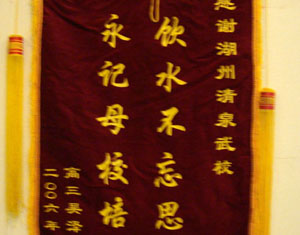 感谢湖州清泉武校
饮水不忘思
永记母校培
高三吴泽
二〇〇六年